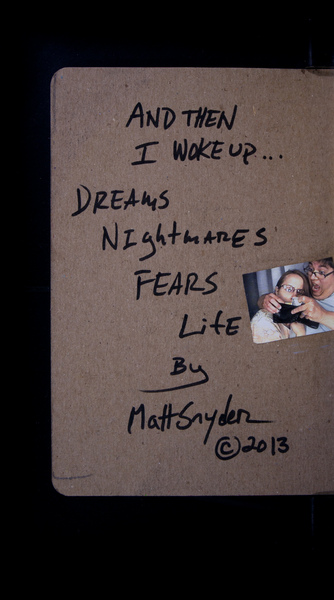 AND THEN
I WOKE UP...
DREAMS
NIghtmARES
FEARS
LifE
By
Matt Snyder
©2013